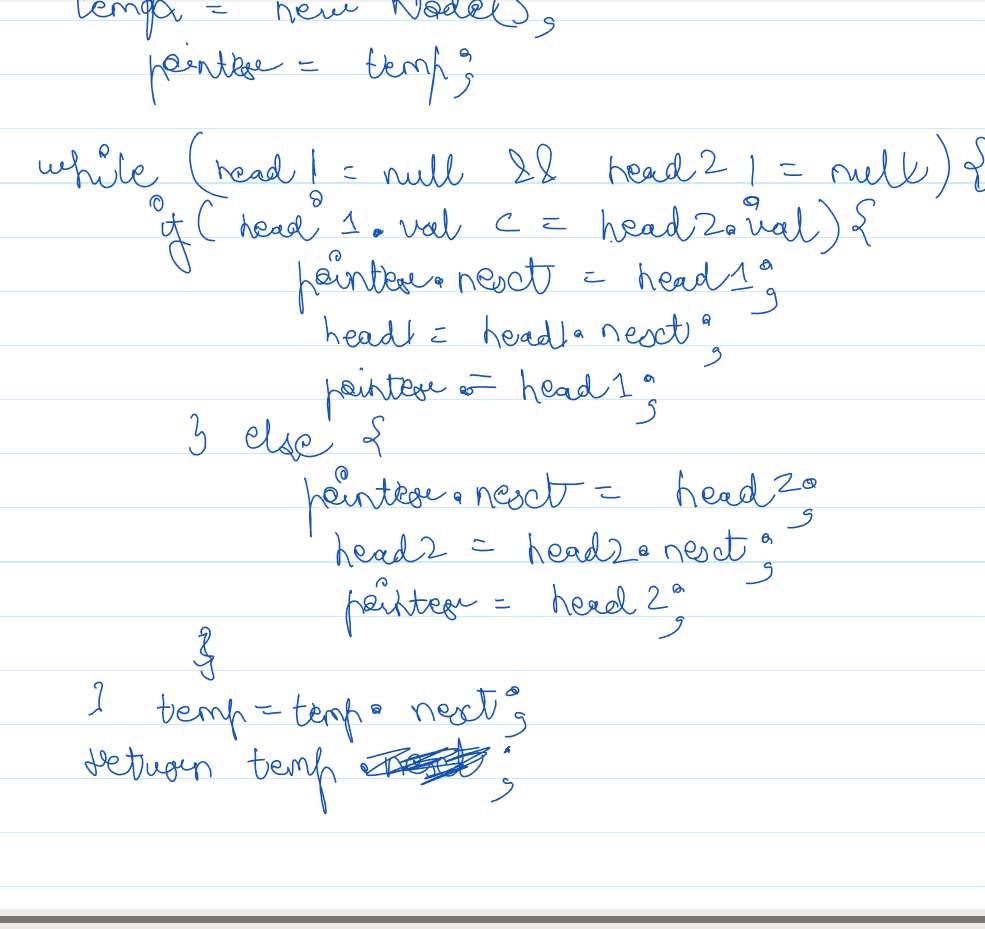 temp = new Node();
pointer = temp;
while (head != null && head2 != null) {
if (head 1.val <= head2.val) {
pointer.next = head1;
head1 = head1.next;
pointer = head1;
} else {
pointer.next = head2;
head2 = head2.next;
pointer = head2;
}
} temp = temp.next;
return temp ;